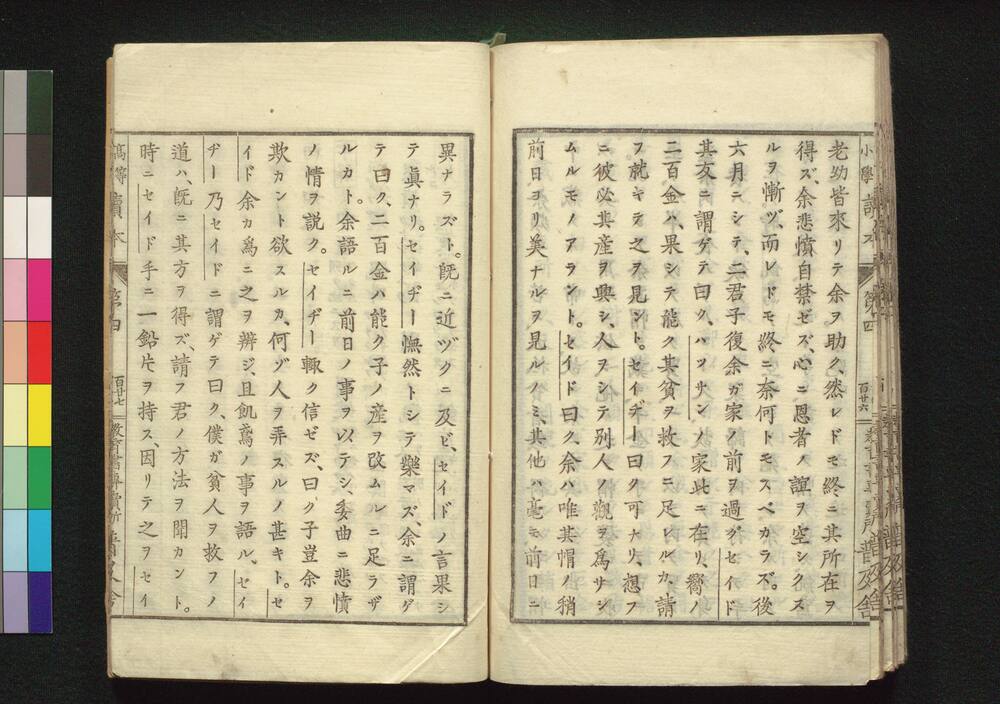 小學讀本
第四
百廿六
普及舎
老幼皆來リテ余ヲ助ク、然レドモ終ニ其所在ヲ
得ズ、余悲憤自禁ゼズ、心ニ恩者ノ誼ヲ空シクス
ルヲ慚ヅ、而レドモ終ニ奈何トモスベカラズ。後
六月ニシテ、二君子復余ガ家ノ前ヲ過グセイド
其友ニ謂ゲテ曰ク、ハッサンノ家此ニ在リ、嚮ノ
二百金ハ、果シテ能ク其貧ヲ救フニ足レルカ、請
フ就キテ之ヲ見ント。セイヂー曰ク可ナリ、想フ
ニ彼必其産ヲ興シ、人ヲシテ別人ノ觀ヲ爲サシ
ムルモノアラント。セイド曰ク、余ハ唯其帽ノ稍
前日ヨリ美ナルヲ見ルノミ、其他ハ毫モ前日ニ
異ナラズト。既ニ近ヅクニ及ビ、セイドノ言果シ
テ眞ナリ。セイヂー憮然トシテ樂マズ、余ニ謂ゲ
テ曰ク、二百金ハ能ク子ノ産ヲ改ムルニ足ラザ
ルカト。余語ルニ前日ノ事ヲ以テシ、委曲ニ悲憤
ノ情ヲ説ク。セイヂー輙ク信ゼズ、曰ク子豈余ヲ
欺カント欲スルカ、何ゾ人ヲ弄スルノ甚キト。セ
イド余カ爲ニ之ヲ辨ジ、且飢鳶ノ事ヲ語ル、セイ
ヂー乃セイドニ謂ゲテ曰ク、僕ガ貧人ヲ救フノ
道ハ、既ニ其方ヲ得ズ、請フ君ノ方法ヲ聞カント。
時ニセイド手ニ一鉛片ヲ持ス、因リテ之ヲセイ
高等讀本
第四
百廿七
教育書專賣所
普及舎